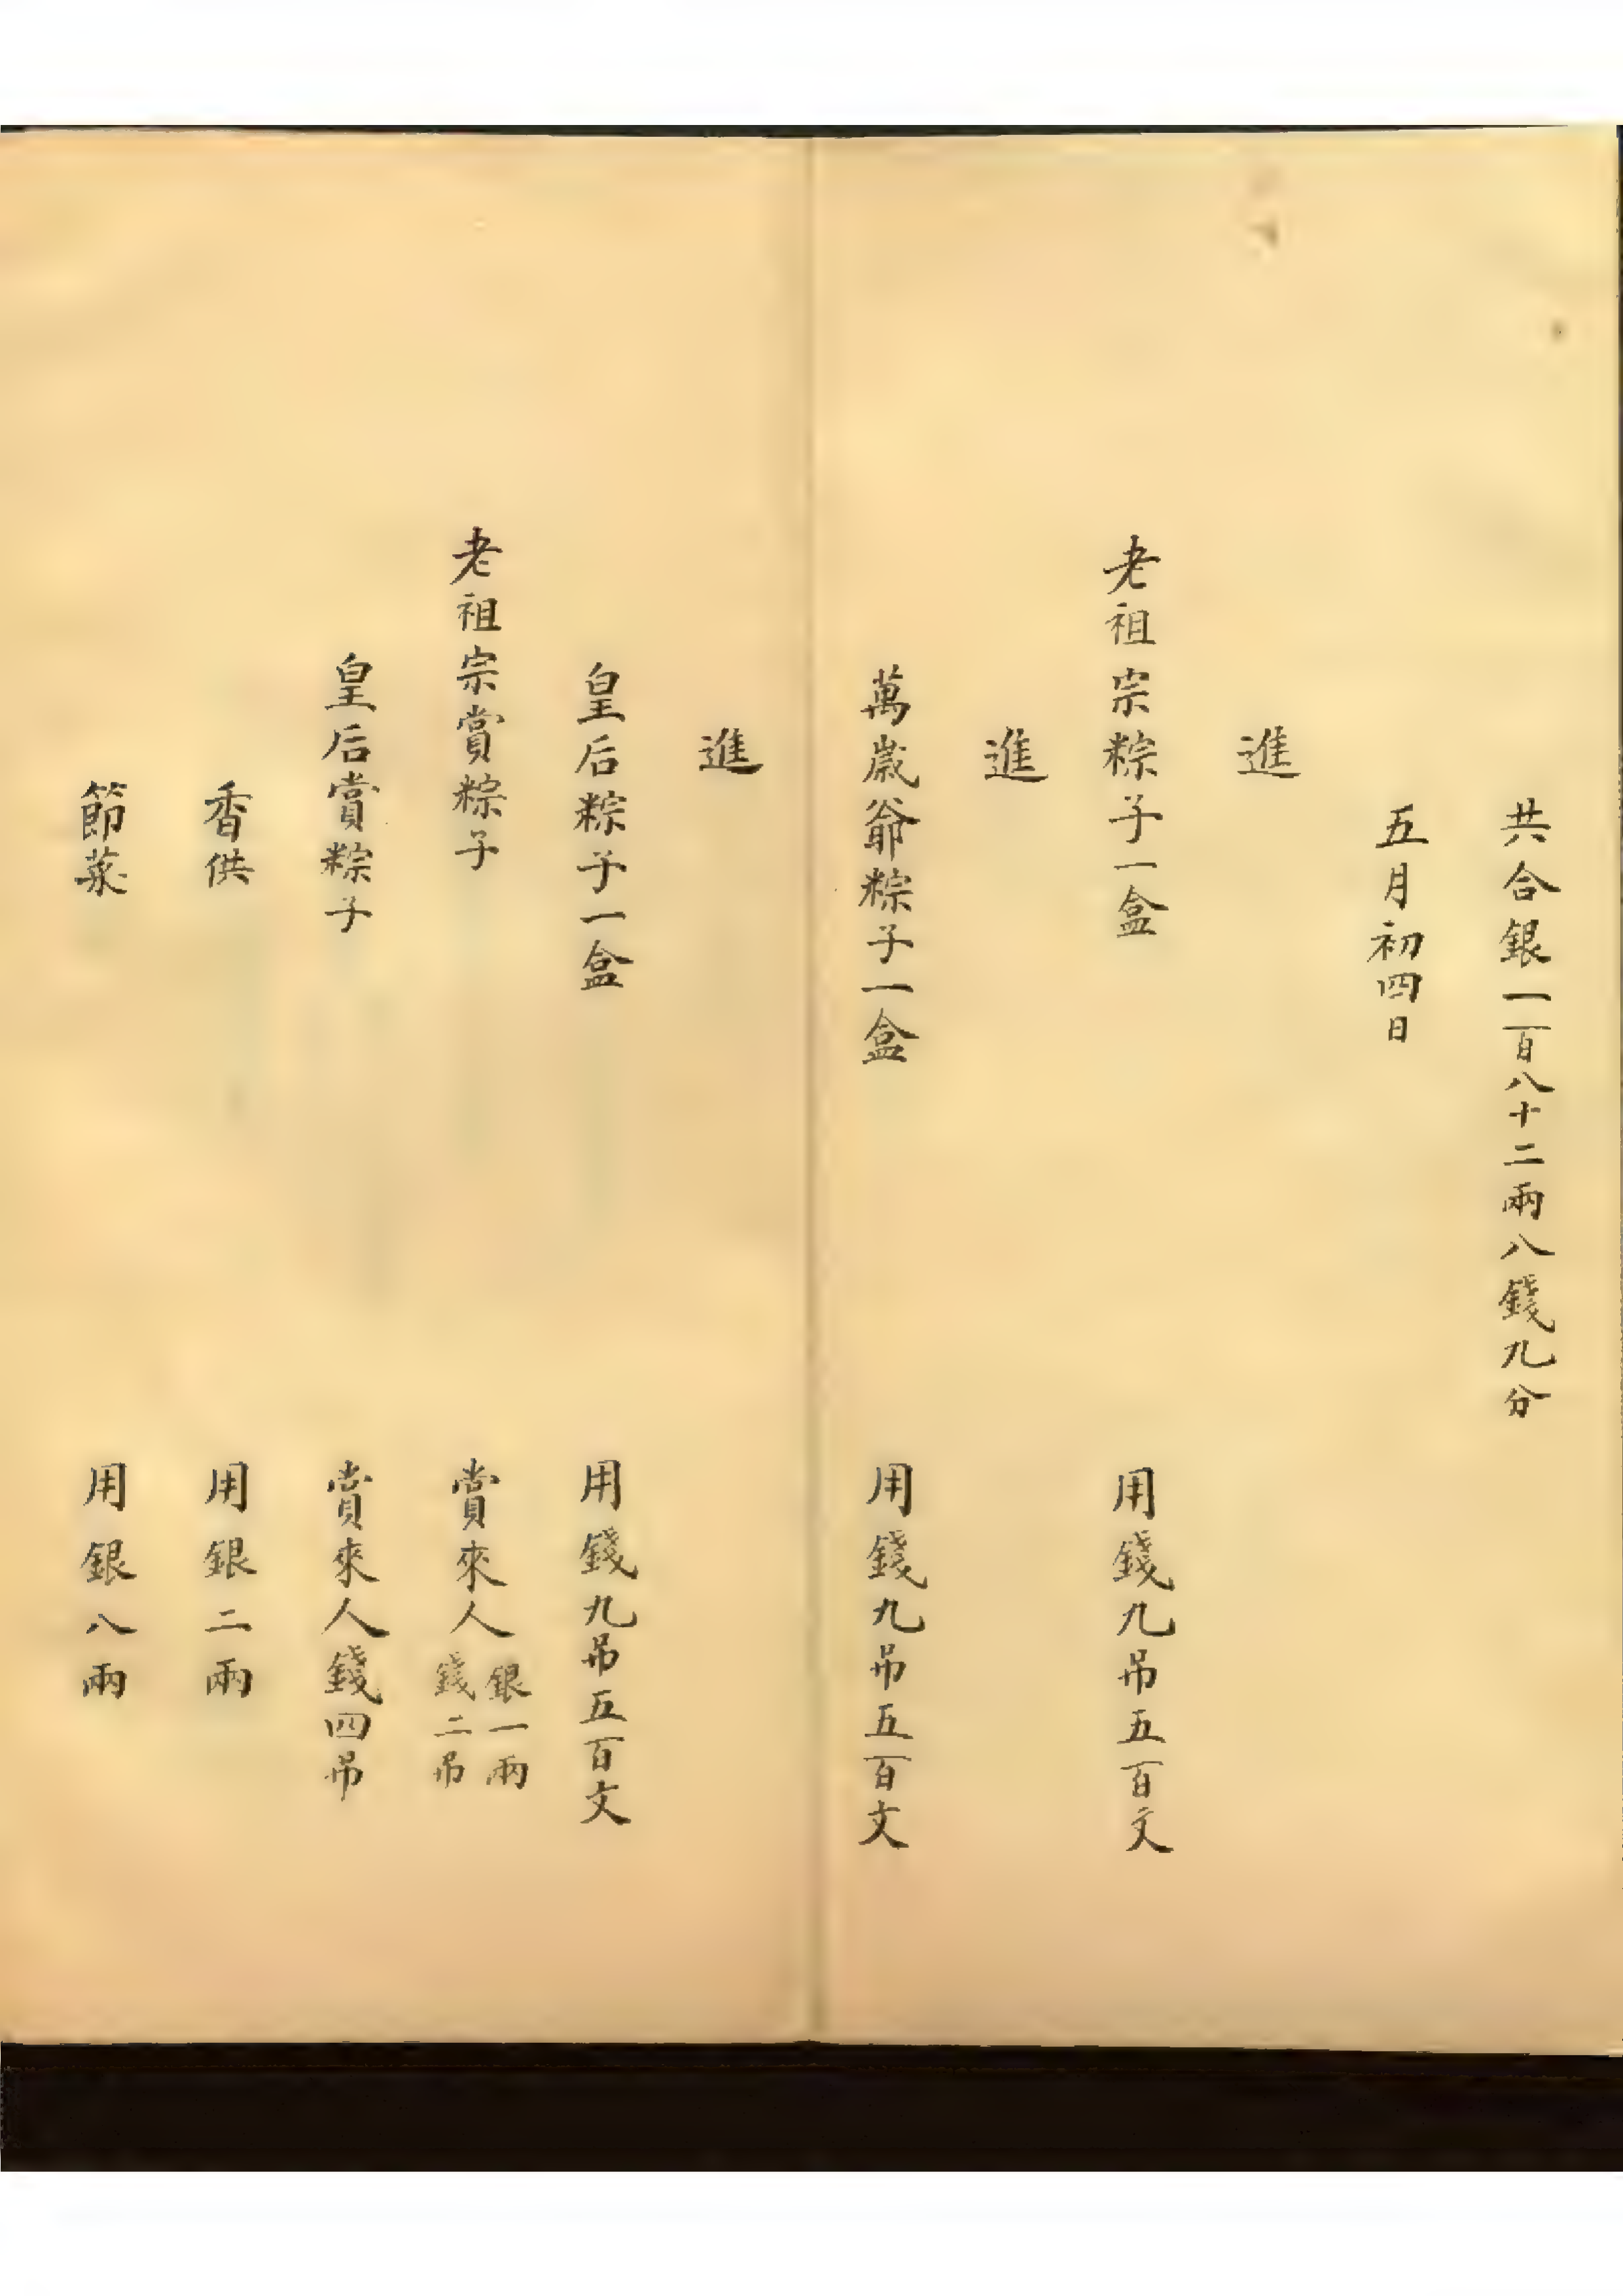 共合銀一百八十二兩八錢九分
五月初四日
進
老祖宗粽子一盒 用錢九吊五百文
進
萬歲爺粽子一盒 用錢九吊五百文
進
皇后粽子一盒 用錢九吊五百文
老祖宗賞粽子 賞來人銀一兩錢二吊
皇后賞粽子 賞來人錢四吊
香供 用銀二兩
節菜 用銀八兩